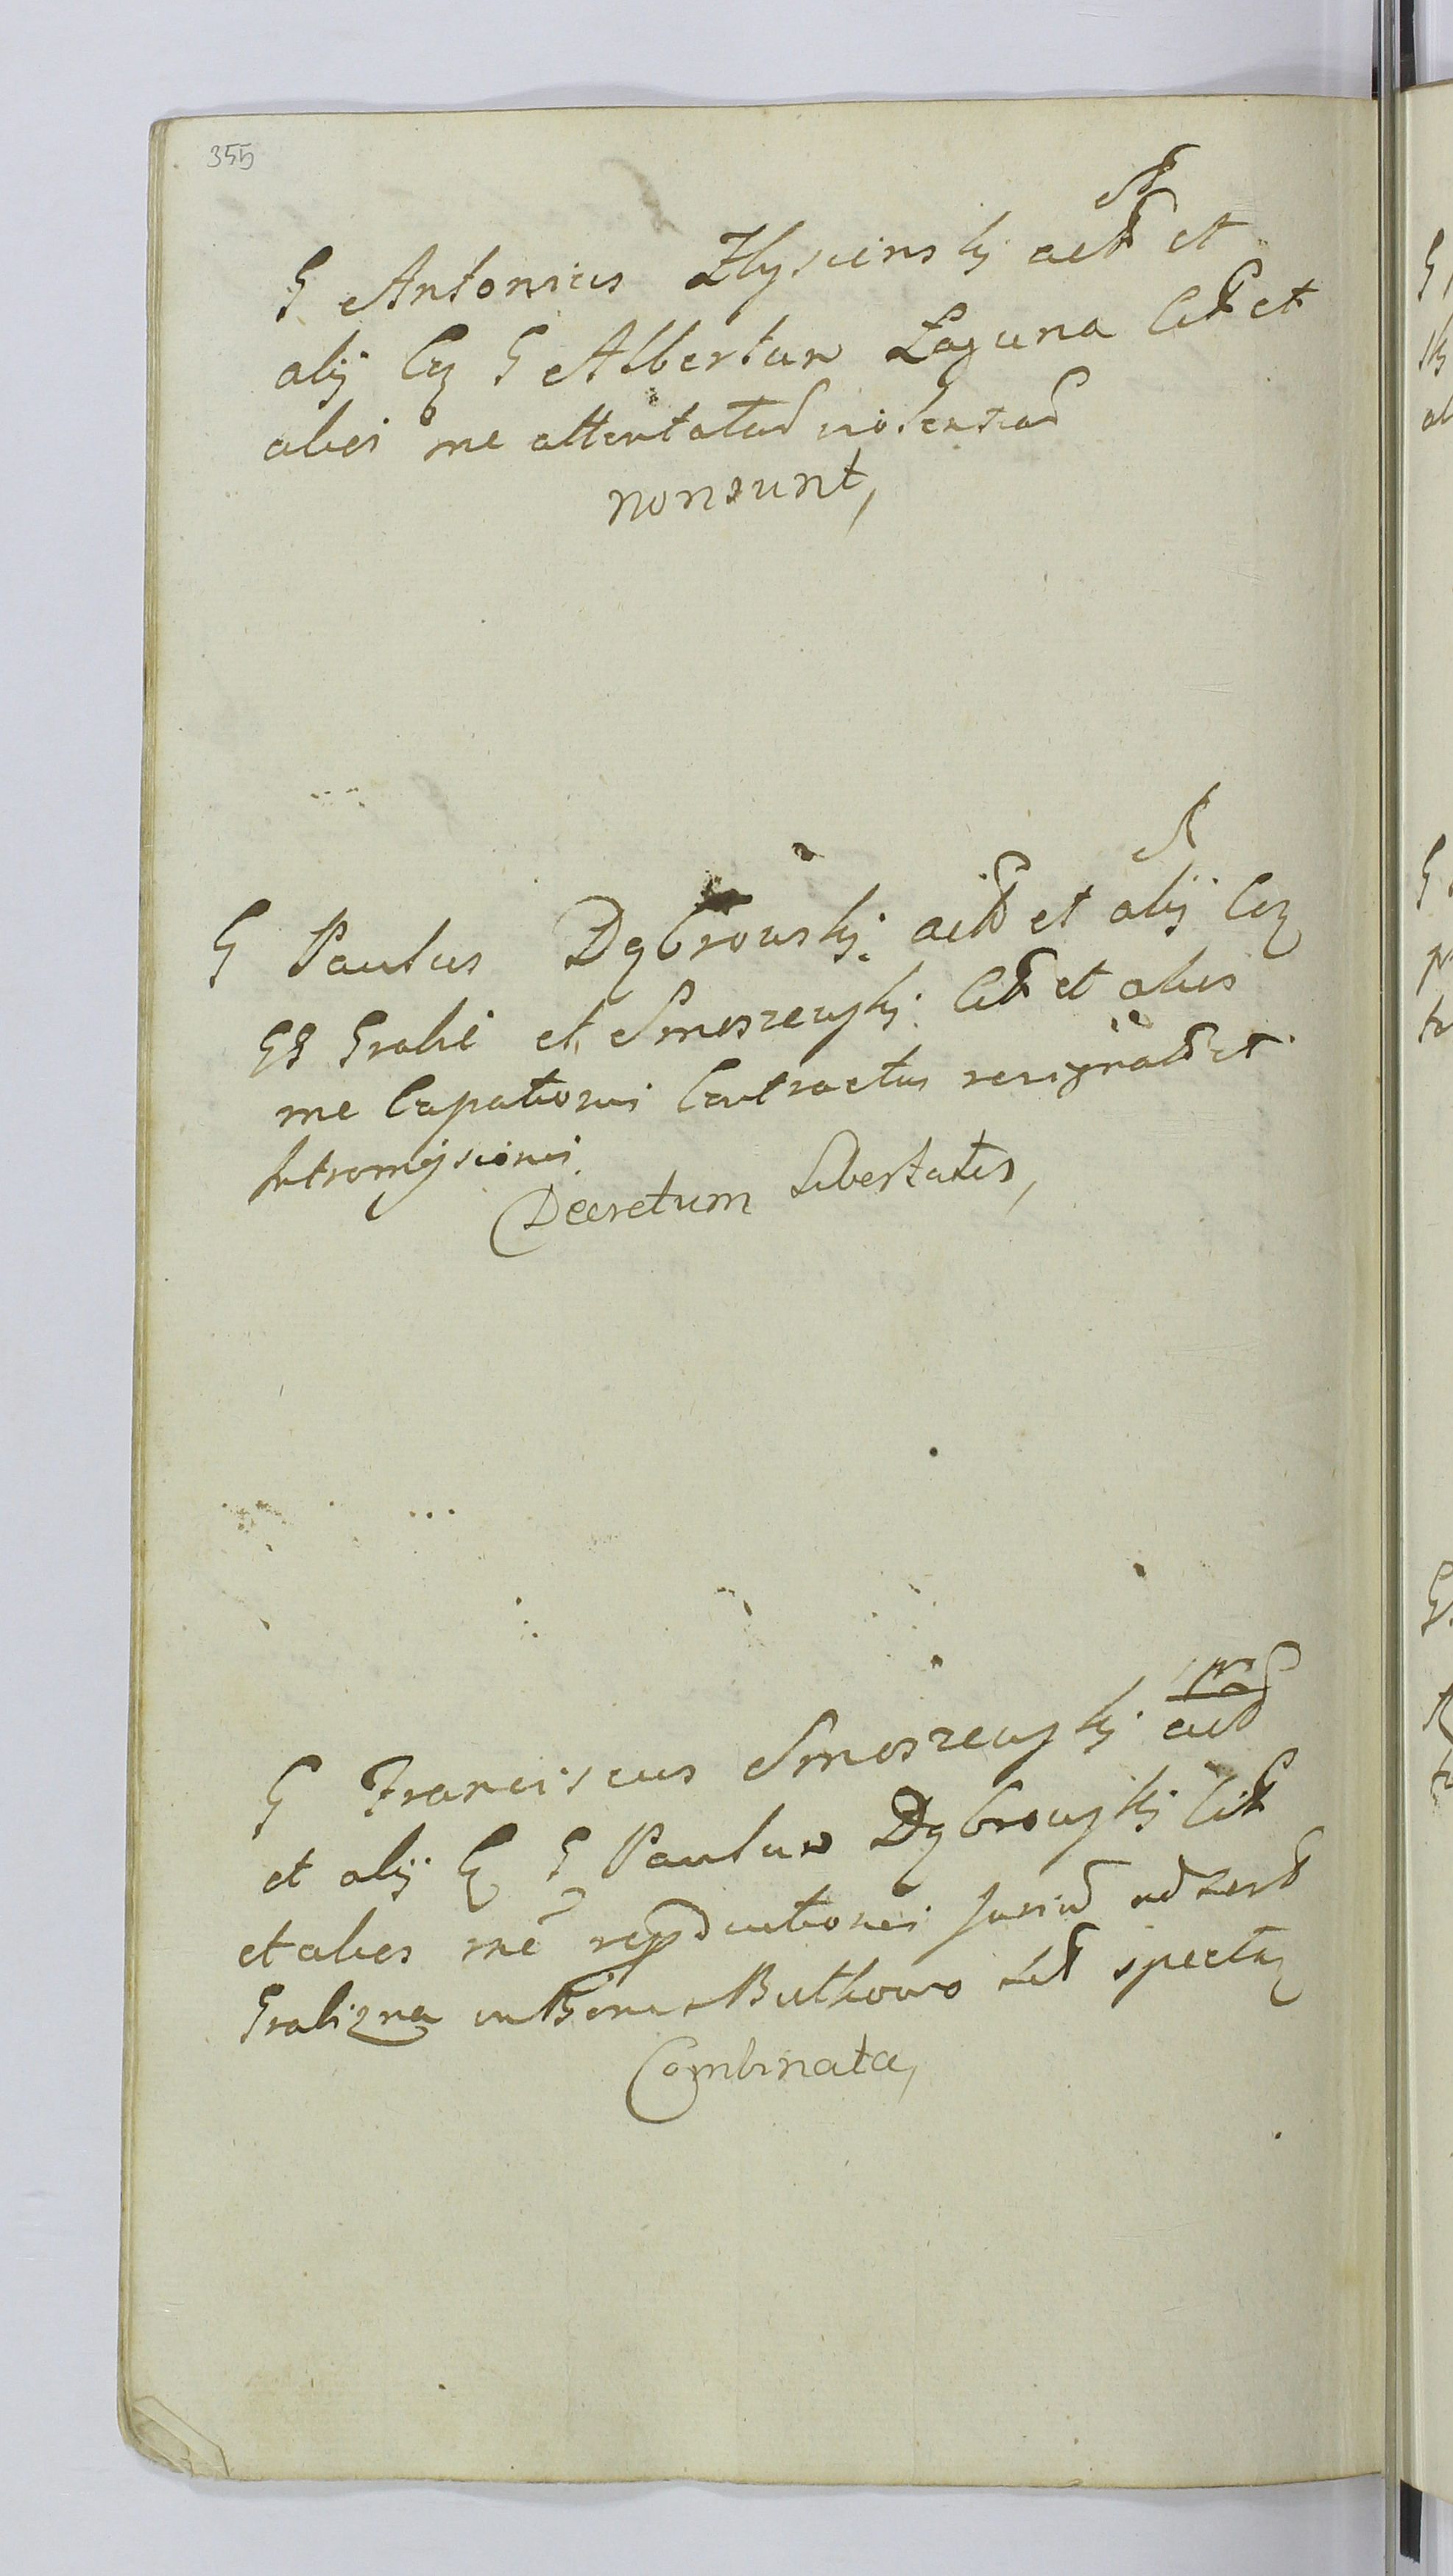 355
G Antonius Zlysienskj act et
alij Cq G Albertum Laguna Cit et
alios me attentatad violentiad
non sunt,
G Paulus Dąbrowskj act et alij Cq
GG Grabie et Smoszewskj Cit et alios
me Cupationis Contractus resignatt et
Intromissionis
Decretum Libertatis,
G Franciscus Smoszewskj act
et alij Cq G Paulum Dąbrowskj Cit
et alios me repductionis Juriud ad sort
Grabizna in Bonis Butkowo sit spectaq
Combinata,